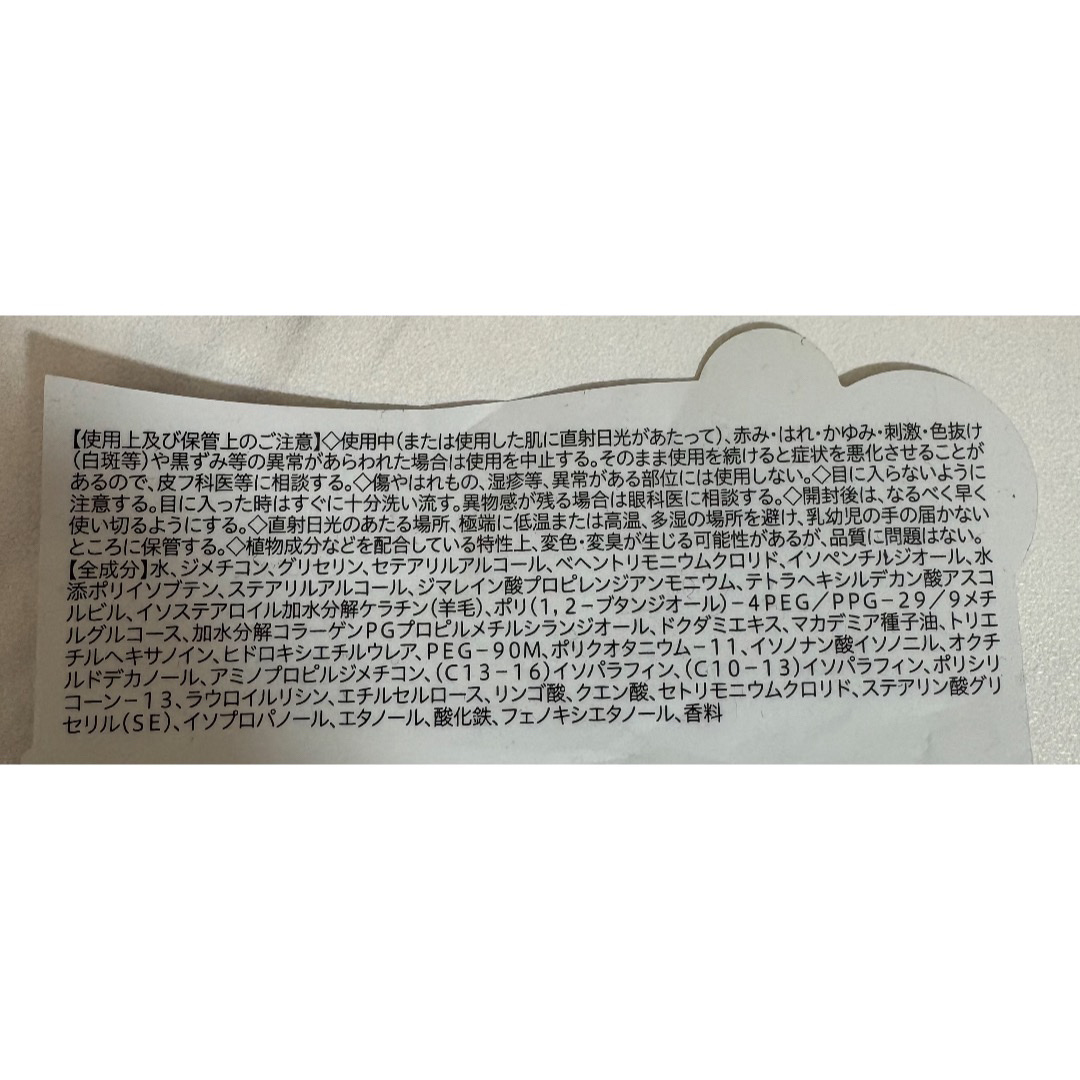 【使用上及び保管上のご注意】◇使用中(または使用した肌に直射日光があたって)、赤み・はれ・かゆみ・刺激・色抜け
(白斑等)や黒ずみ等の異常があらわれた場合は使用を中止する。そのまま使用を続けると症状を悪化させることが
あるので、皮フ科医等に相談する。◇傷やはれもの、湿疹等、異常がある部位には使用しない。◇目に入らないように
注意する。目に入った時はすぐに十分洗い流す。異物感が残る場合は眼科医に相談する。◇開封後は、なるべく早く
使い切るようにする。◇直射日光のあたる場所、極端に低温または高温、多湿の場所を避け、乳幼児の手の届かない
ところに保管する。◇植物成分などを配合している特性上、変色・変臭が生じる可能性があるが、品質に問題はない。
【全成分】水、ジメチコン、グリセリン、セテアリルアルコール、ベヘントリモニウムクロリド、イソペンチルジオール、水
添ポリイソブテン、ステアリルアルコール、ジマレイン酸プロピレンジアンモニウム、テトラヘキシルデカン酸アスコ
ルビル、イソステアロイル加水分解ケラチン(羊毛)、ポリ(1,2-ブタンジオール)-4PEG/PPG-29/9メチ
ルグルコース、加水分解コラーゲンPGプロピルメチルシランジオール、ドクダミエキス、マカデミア種子油、トリエ
チルヘキサノイン、ヒドロキシエチルウレア、PEG-90M、ポリクオタニウム-11、イソノナン酸イソノニル、オクチ
ルドデカノール、アミノプロピルジメチコン、(C13-16)イソパラフィン、(C10-13)イソパラフィン、ポリシリ
コーン-13、ラウロイルリシン、エチルセルロース、リンゴ酸、クエン酸、セトリモニウムクロリド、ステアリン酸グリ
セリル(SE)、イソプロパノール、エタノール、酸化鉄、フェノキシエタノール、香料